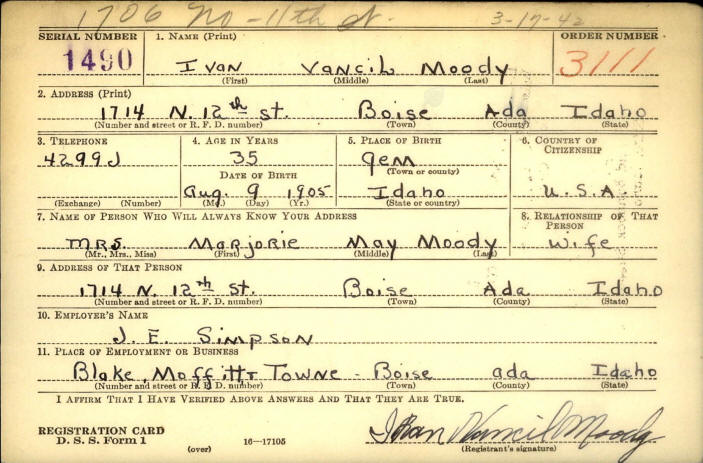 1706 No - 11th St. 3-17-42
SERIAL NUMBER 1. NAME (Print) ORDER NUMBER
1490 Ivan Vancil Moody 3111
(First) (Middle) (Last)
2. ADDRESS (Print)
1714 N. 12th St. Boise Ada Idaho
(Number and street or R. F. D. number) (Town) (County) (State)
3. TELEPHONE 4. AGE IN YEARS 5. PLACE OF BIRTH 6. COUNTRY OF CITIZENSHIP
4299J 35 Gem
(Town or county)
DATE OF BIRTH
Aug. 9 1905 Idaho U.S.A.
(Exchange) (Number) (Mo.) (Day) (Yr.) (State or country)
7. NAME OF PERSON WHO WILL ALWAYS KNOW YOUR ADDRESS 8. RELATIONSHIP OF THAT PERSON
Mrs. Marjorie May Moody Wife
(Mr., Mrs., Miss) (First) (Middle) (Last)
9. ADDRESS OF THAT PERSON
1714 N. 12th St. Boise Ada Idaho
(Number and street or R. F. D. number) (Town) (County) (State)
10. EMPLOYER'S NAME
J. E. Simpson
11. PLACE OF EMPLOYMENT OR BUSINESS
Blake, Moffitt Towne - Boise Ada Idaho
(Number and street or R. F. D. number) (Town) (County) (State)
I AFFIRM THAT I HAVE VERIFIED ABOVE ANSWERS AND THAT THEY ARE TRUE.
REGISTRATION CARD
D. S. S. Form 1 (over) 16-17105
Ivan Vancil Moody
(Registrant's signature)